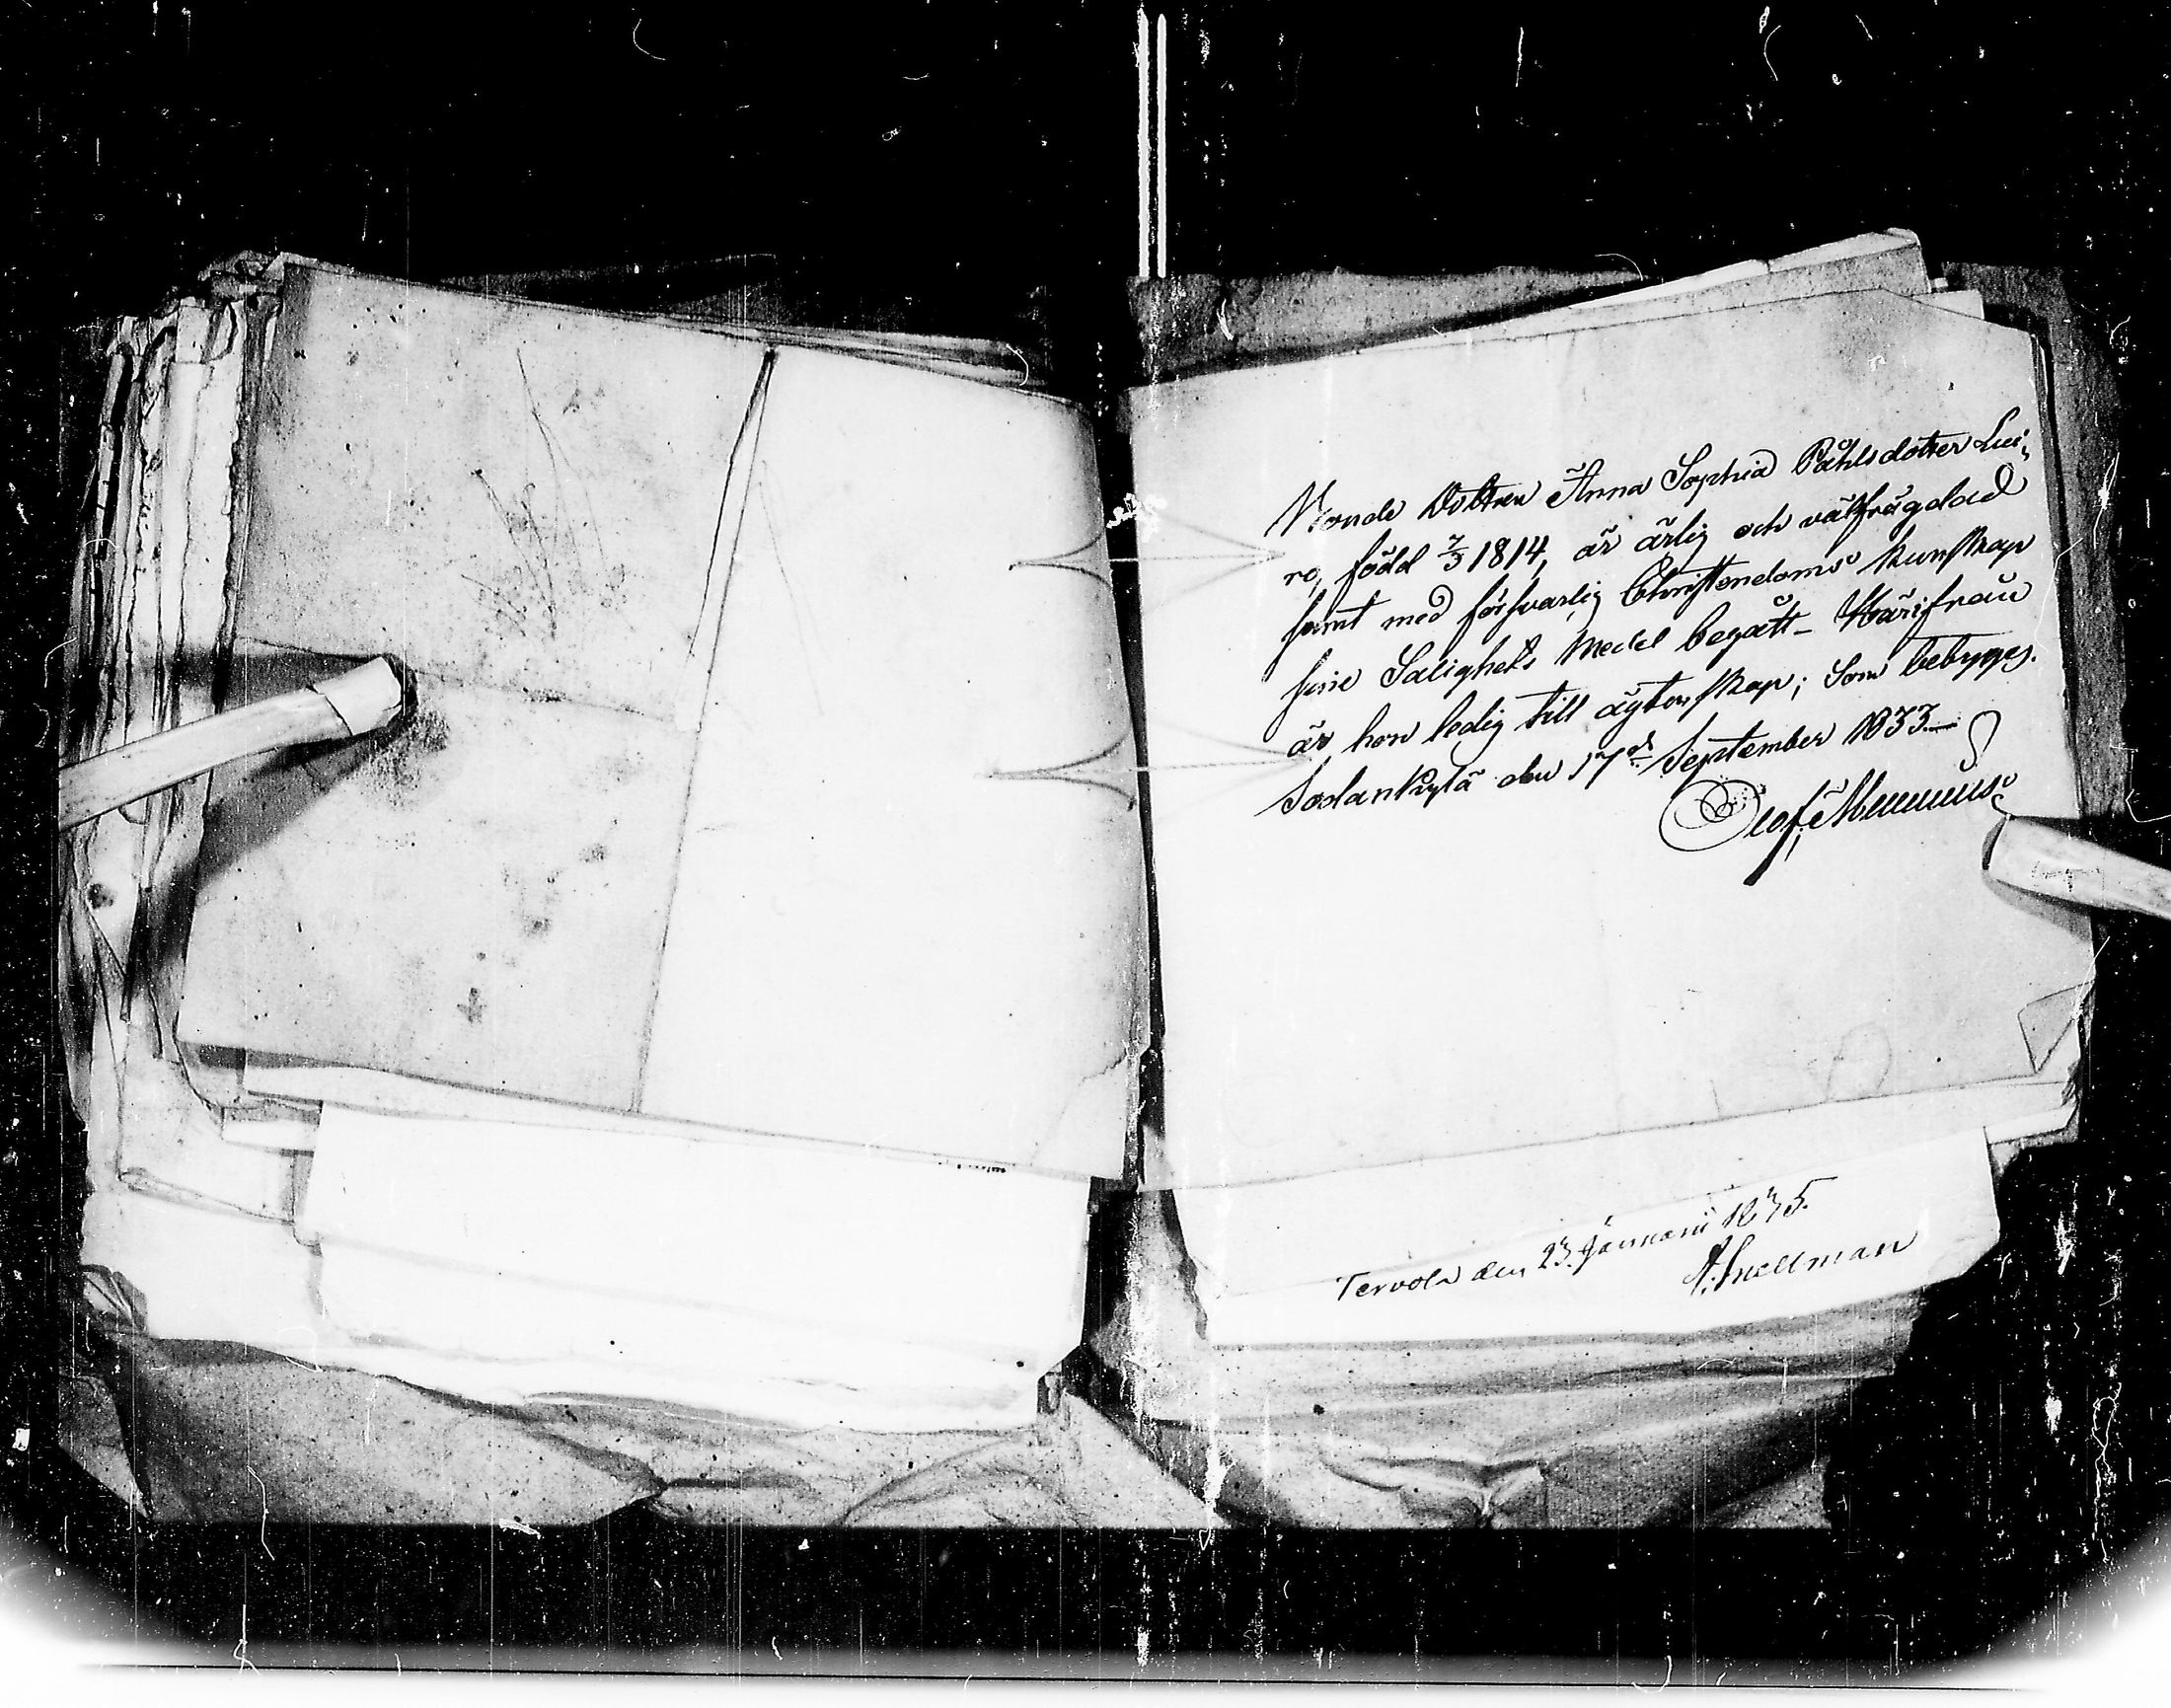 Bonde Dottren Anna Sophia Påhlsdotter Lui-
ro, född 7/3 1814, är ärlig och välfrägdad
samt med försvarlig Christendoms kunskap
sine Salighets Medel begått - Härifrån
är hon ledig till ägtenskap; Som betyges.
Sodankylä den 17de September 1833 —
Olof
Tervola den 23 Januarii 1835.
A. Snellman